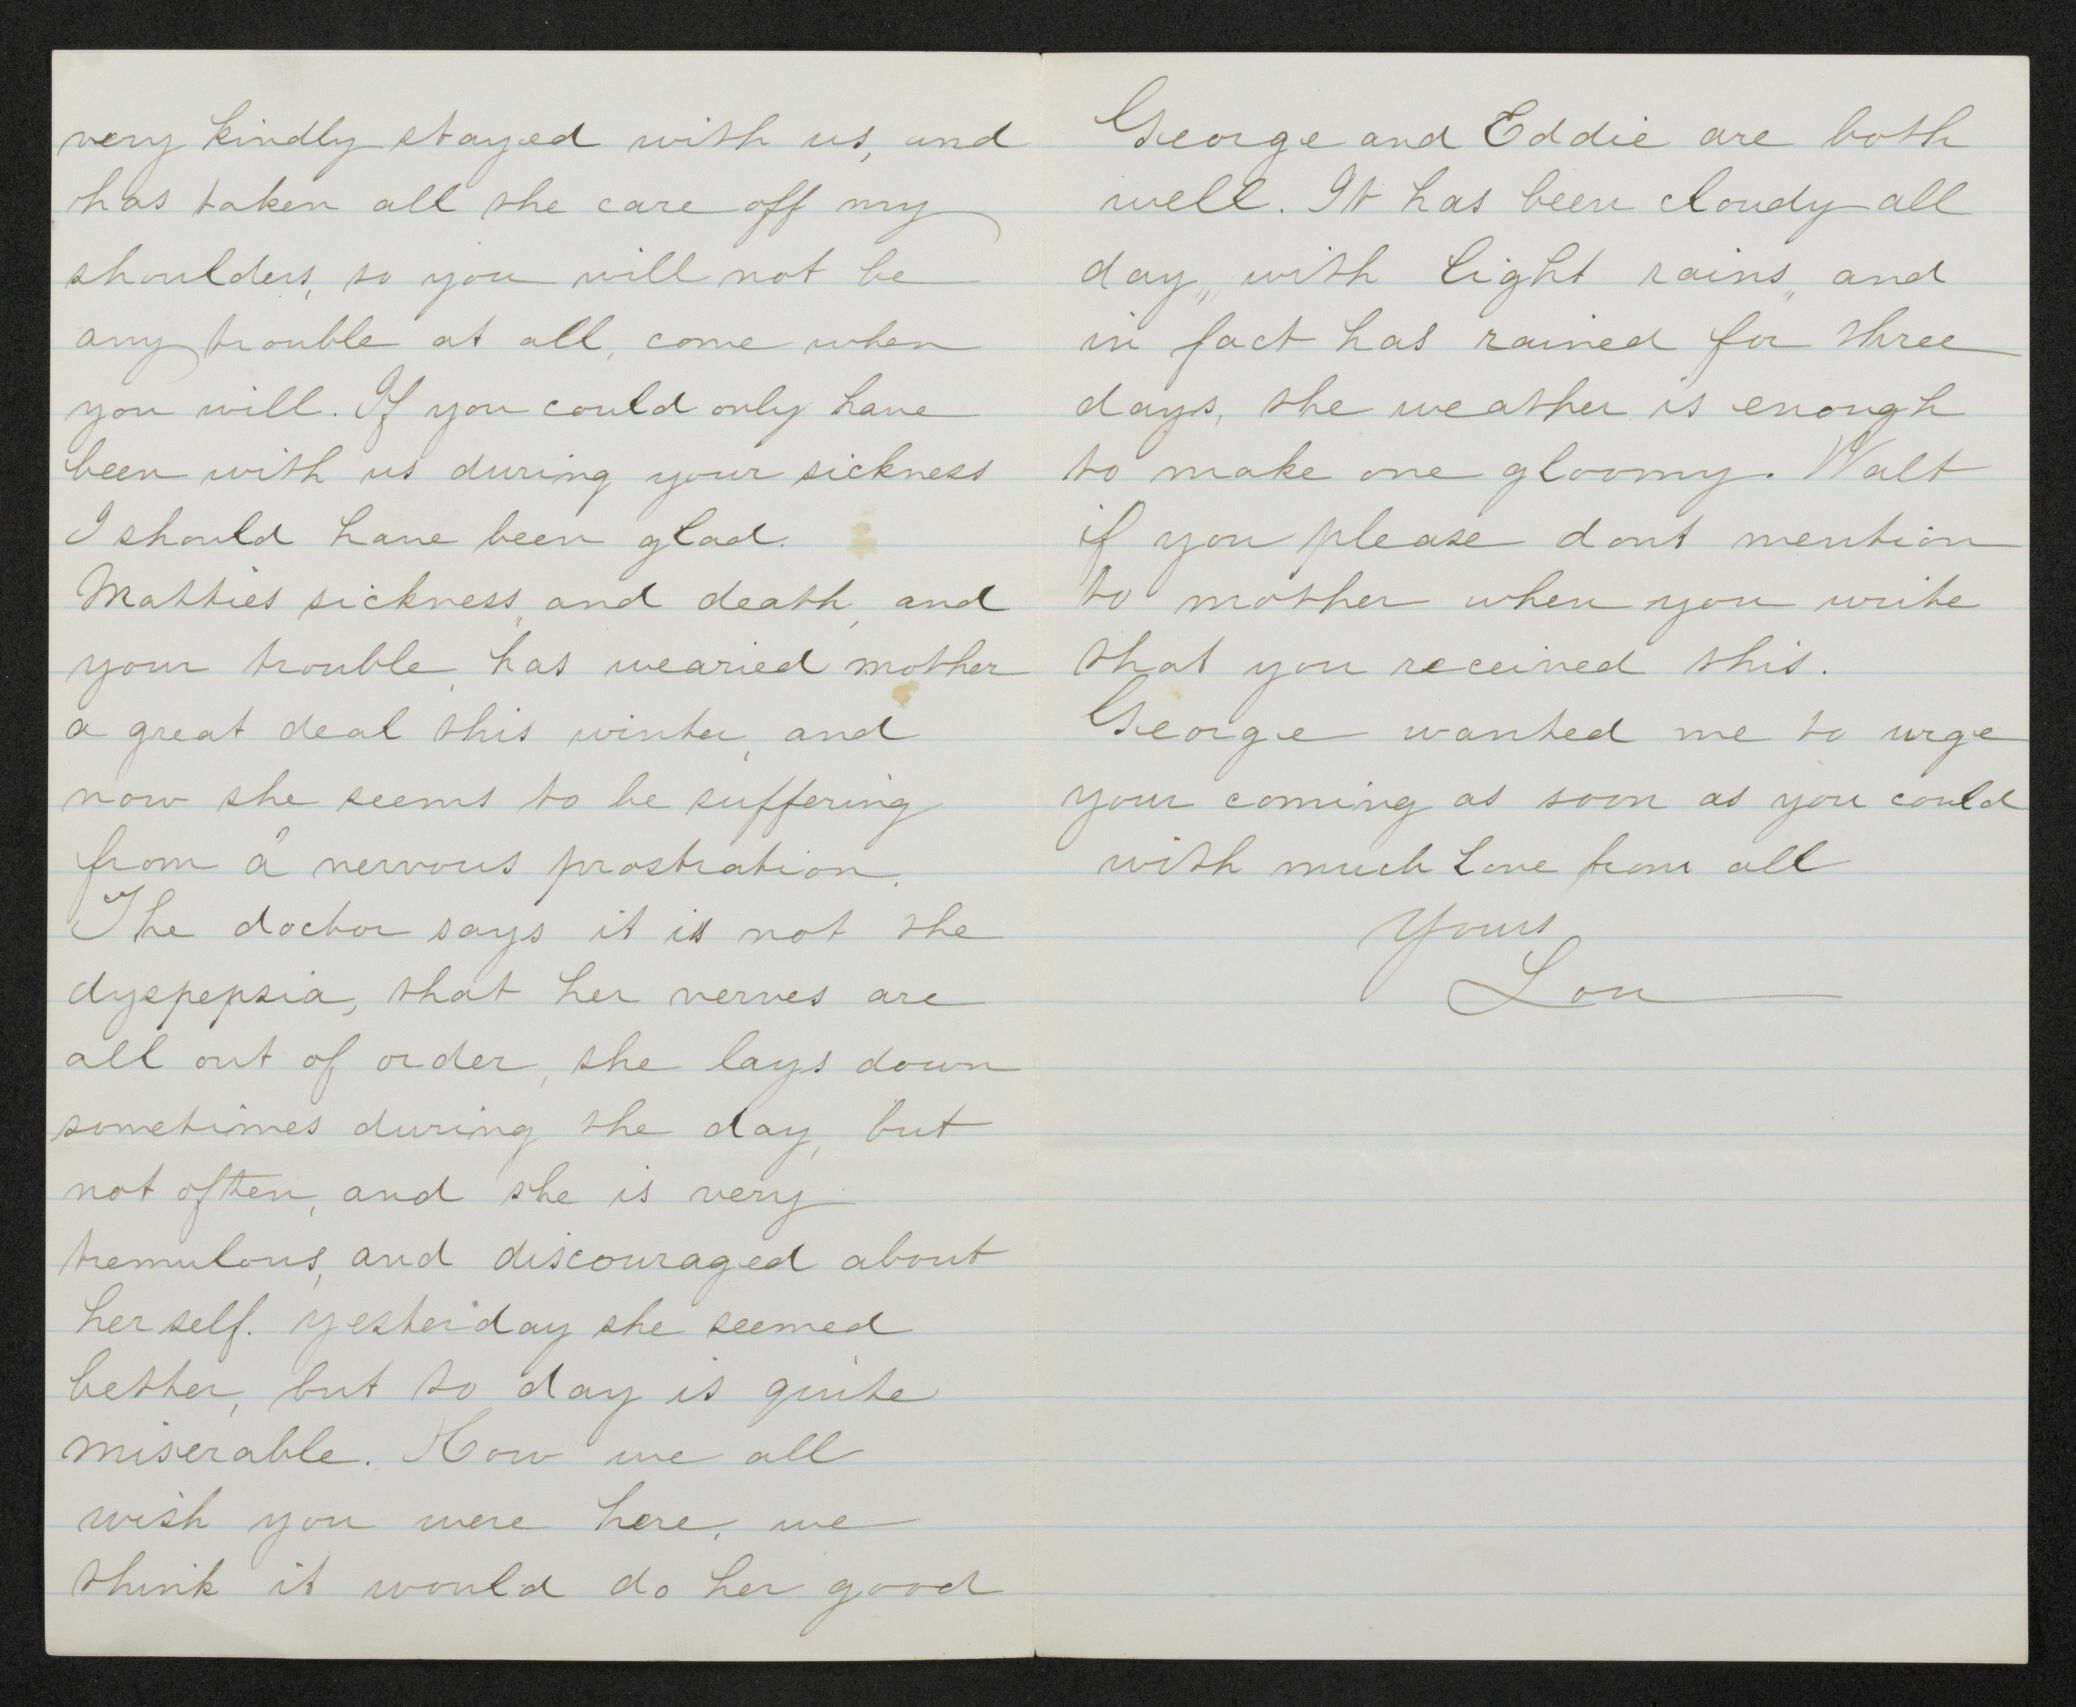 very kindly stayed with us, and
has taken all the care off my
shoulders, so you will not be
any trouble at all, come when
you will. If you could only have
been with us during your sickness
I should have been glad.
Matties sickness, and death, and
your trouble, has wearied mother
a great deal this winter, and
now she seems to be suffering
from a nervous prostration.
The doctor says it is not the
dyspepsia, that her nerves are
all out of order, she lays down
sometimes during the day, but
not often, and she is very
tremulous, and discouraged about
herself. yesterday she seemed
better, but to day is quite
miserable. How we all
wish you were here, we
think it would do her good
George and Eddie are both
well. It has been cloudy all
day,, with light rains,, and
in fact has rained for three
days, the weather is enough
to make one gloomy. Walt
if you please dont mention
to mother when you write
that you received this.
George wanted me to urge
your coming as soon as you could
with much love from all
Yours
Lou